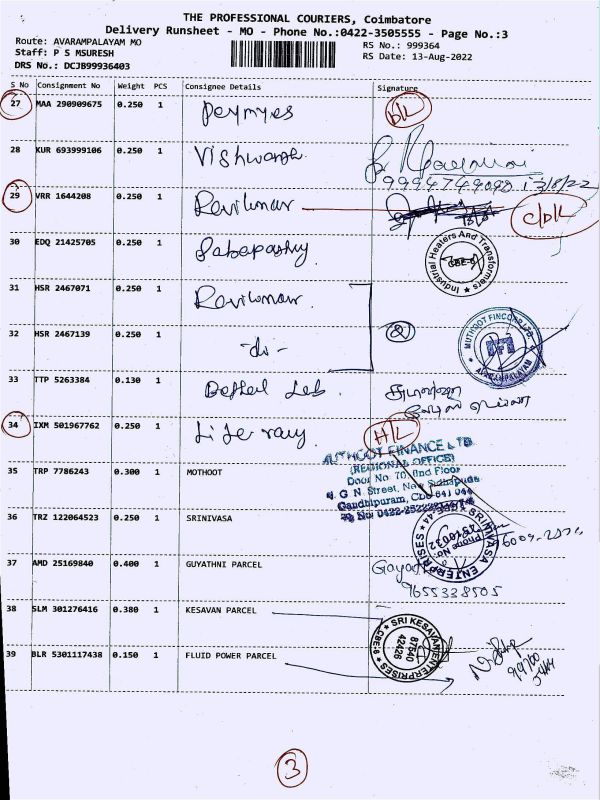 THE PROFESSIONAL COURIERS, Coimbatore
Delivery Runsheet - MO - Phone No.:0422-3505555 - Page No.:3
Route: AVARAMPALAYAM MO
RS No.: 999364
Staff: P S MSURESH
RS Date: 13-Aug-2022
DRS No.: DCJB99936403
S No Consignment No Weight PCS Consignee Details Signature
27 MAA 290909675 0.250 1
28 KUR 693999106 0.250 1 Vishwanth
9994749090 13/8/22
29 VRR 1644208 0.250 1 Ravikumar
30 EDQ 21425705 0.250 1 Sabapathy
Industrial Heaters And Transformers
CBE-6
31 HSR 2467071 0.250 1 Ravikumar
32 HSR 2467139 0.250 1 -do-
MUTHOOT FINCORP LTD
33 TTP 5263384 0.130 1 Bethel Lab
34 IXM 501967762 0.250 1 Literary H/L
MUTHOOT FINANCE LTD
(REGIONAL OFFICE)
Door No. 70, 2nd Floor
35 TRP 7786243 0.300 1 MOTHOOT
G. N. Street, New Sidhapudur
Gandhipuram, Cbe 641 044
36 TRZ 122064523 0.250 1 SRINIVASA
SRINIVASA ENTERPRISES
37 AMD 25169840 0.400 1 GUYATHNI PARCEL
9655338505
38 SLM 301276416 0.380 1 KESAVAN PARCEL
SRI KESAVA ENTERPRISES
87540
42426
CBE-6
39 BLR 5301117438 0.150 1 FLUID POWER PARCEL
3